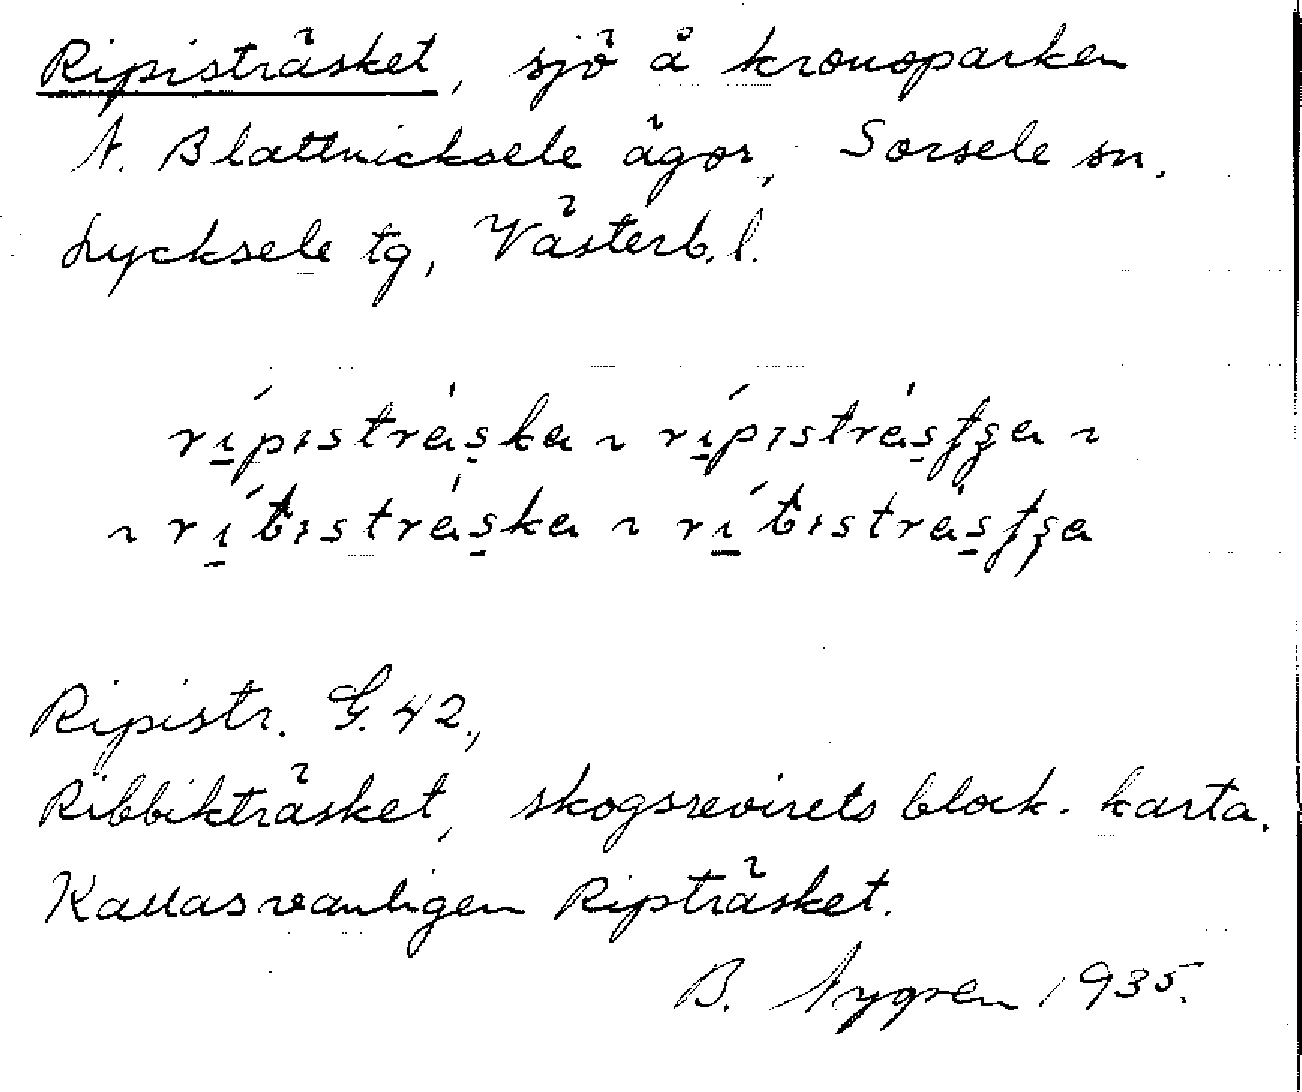 Ripisträsket, sjö å kronoparken
N. Blattnicksele ägor, Sorsele sn.
Lycksele tg, Västerb. l.
Ripistr. G. 42.,
Ribbikträsket, skogsrevirets block. karta.
Kallas vanligen Ripträsket.
B. Nygren 1935.